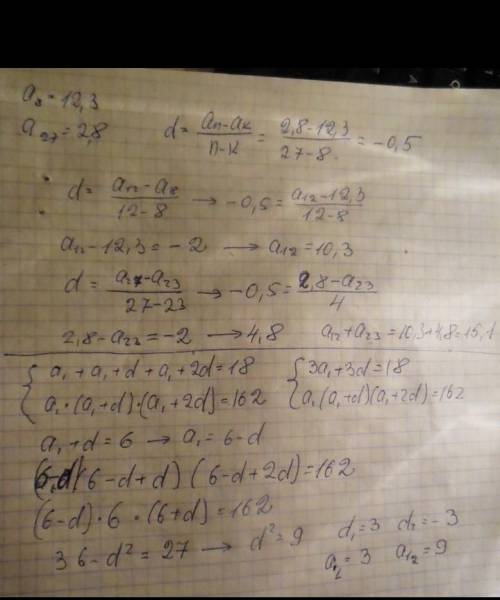 a₈ = 12,3
a₂₇ = 2,8    d = (aₙ - aₖ)/(n - k) = (2,8 - 12,3)/(27 - 8) = -0,5
d = (a₁₂ - a₈)/(12 - 8) → -0,5 = (a₁₂ - 12,3)/(12 - 8)
a₁₂ - 12,3 = -2 → a₁₂ = 10,3
d = (a₂₇ - a₂₃)/(27 - 23) → -0,5 = (2,8 - a₂₃)/4
2,8 - a₂₃ = -2 → 4,8    a₁₂ + a₂₃ = 10,3 + 4,8 = 15,1
{ a₁ + a₁ + d + a₁ + 2d = 18    { 3a₁ + 3d = 18
a₁ · (a₁ + d) · (a₁ + 2d) = 162    a₁ (a₁ + d)(a₁ + 2d) = 162
a₁ + d = 6 → a₁ = 6 - d
(6-d)(6 - d + d) (6 - d + 2d) = 162
(6-d) · 6 · (6 + d) = 162
36 - d² = 27 → d² = 9    d₁ = 3    d₂ = -3
a₁ = 3    a₁₂ = 9